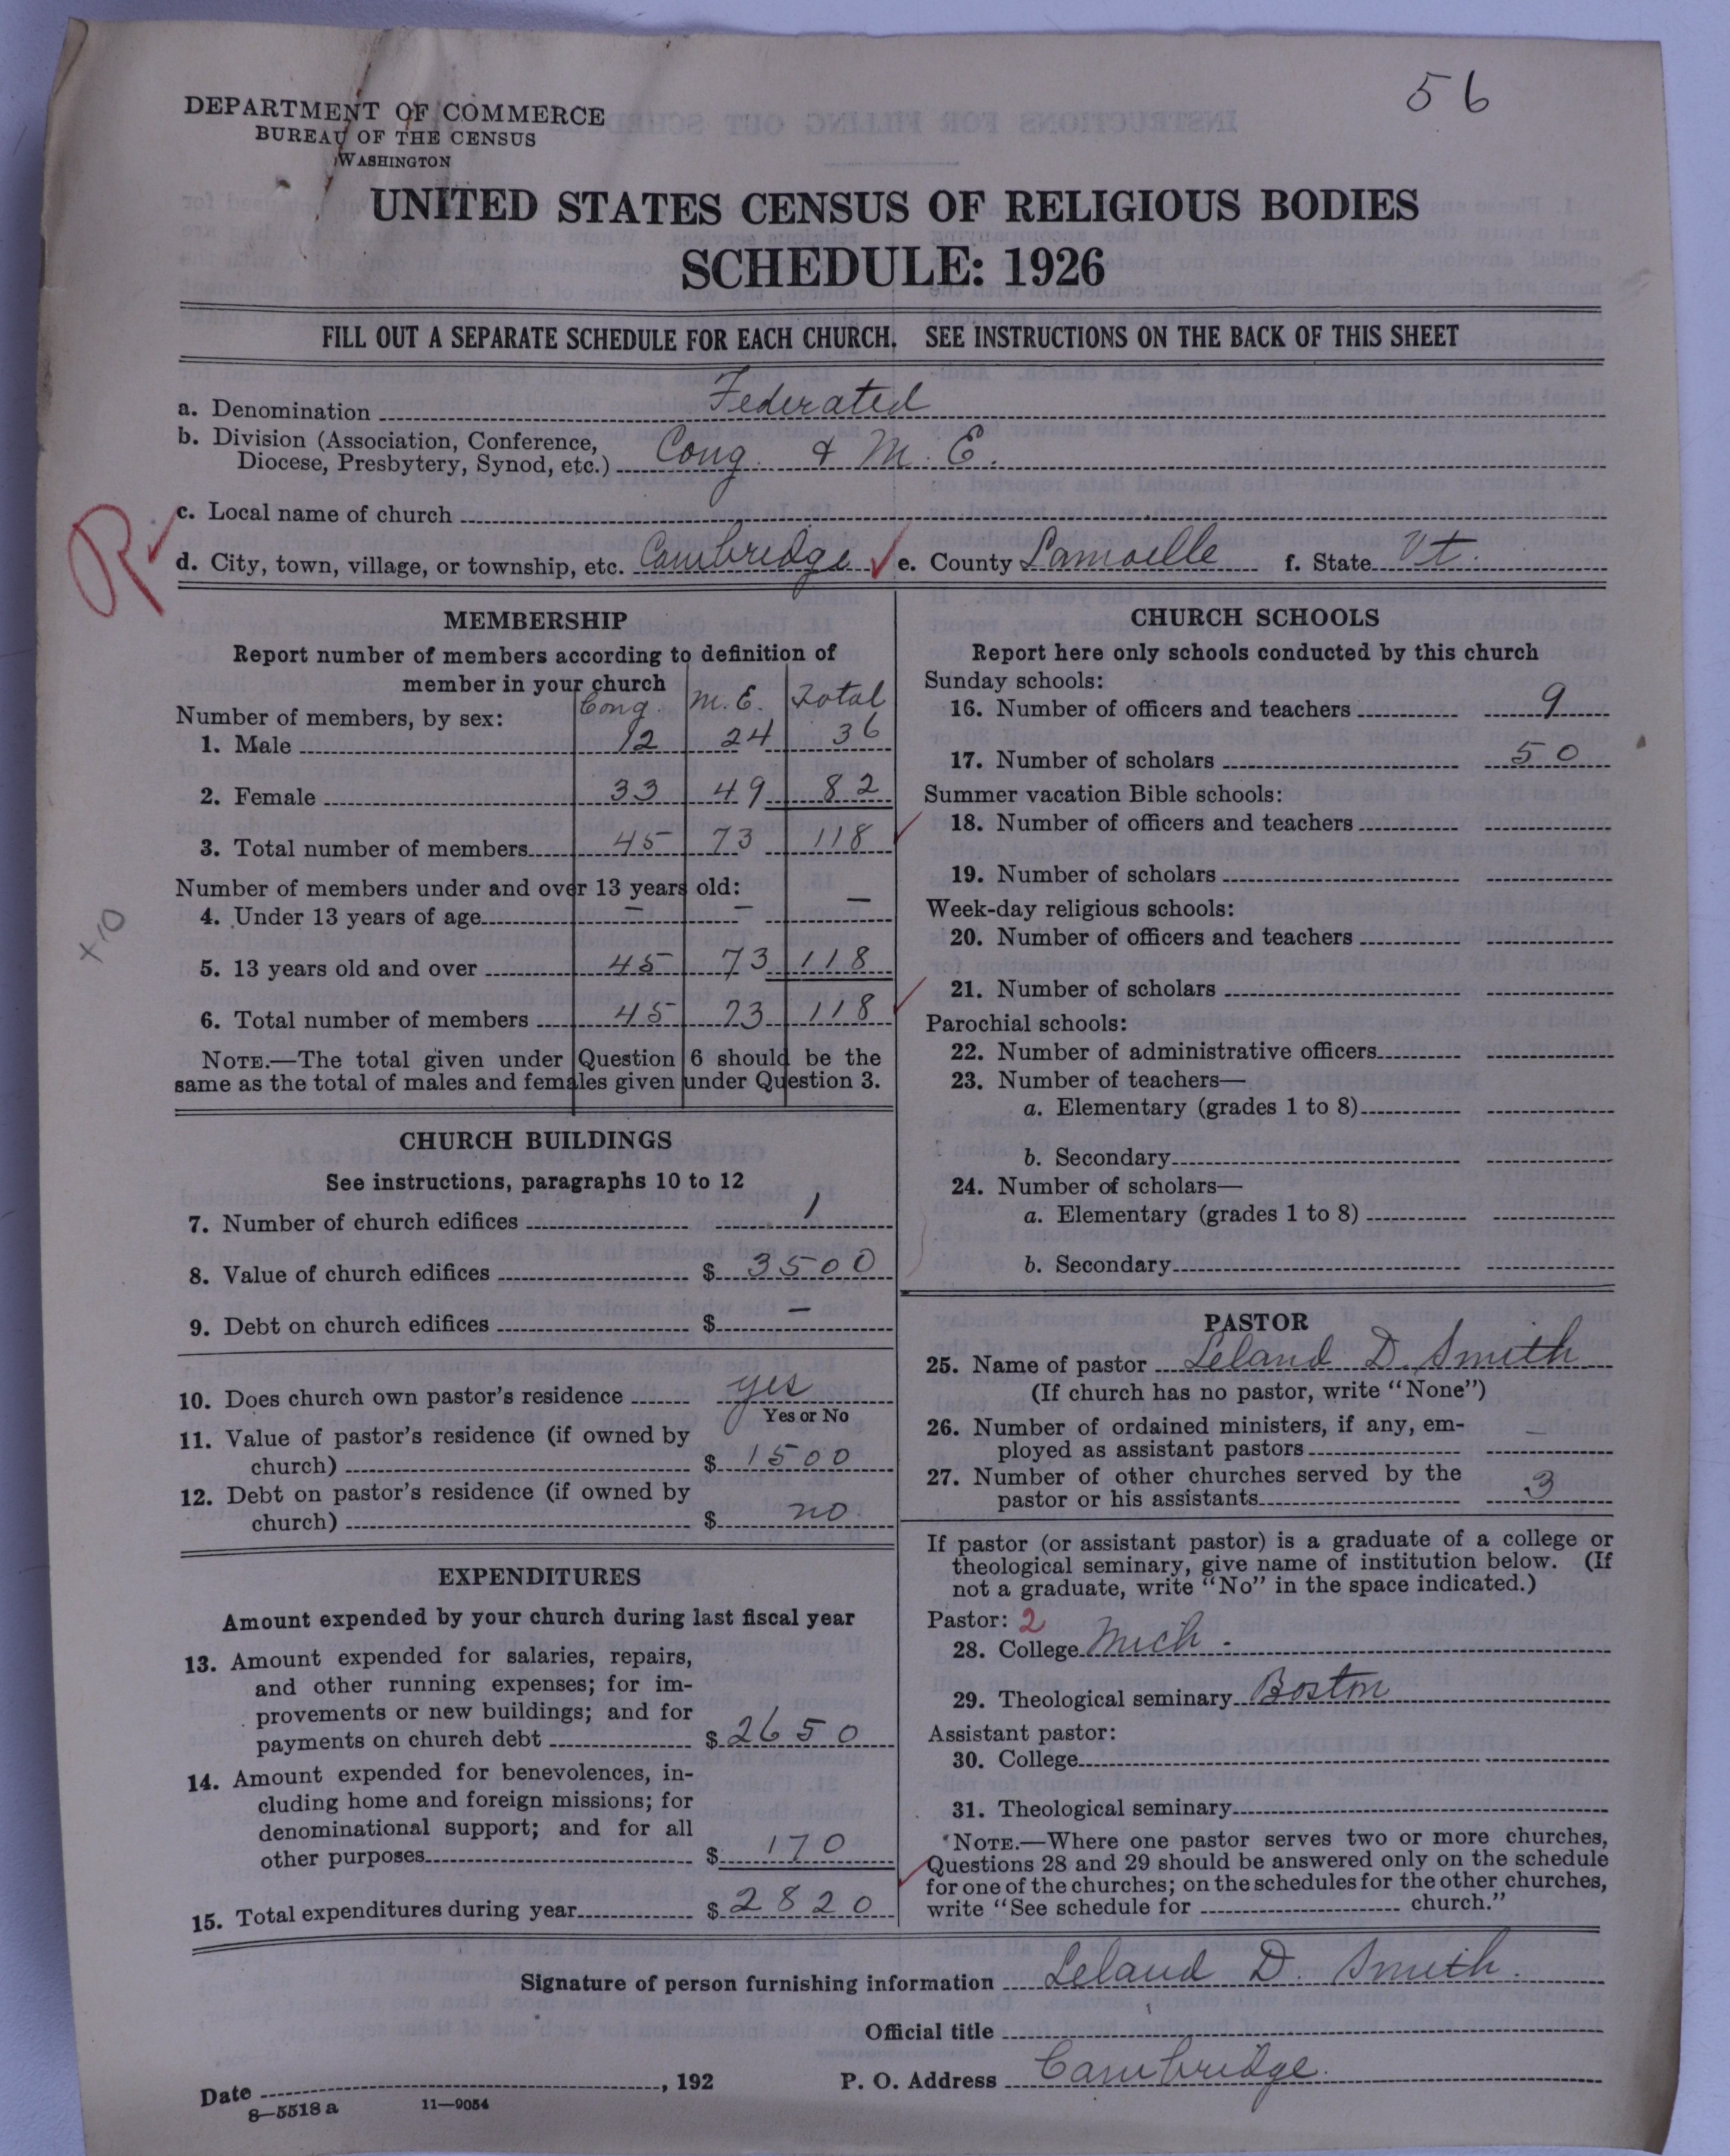 56
DEPARTMENT OF COMMERCE
BUREAU OF THE CENSUS
WASHINGTON
UNITED STATES CENSUS OF RELIGIOUS BODIES
SCHEDULE: 1926
FILL OUT A SEPARATE SCHEDULE FOR EACH CHURCH. SEE INSTRUCTIONS ON THE BACK OF THIS SHEET
a. Denomination Federated
b. Division (Association, Conference,
Diocese, Presbytery, Synod, etc.) Cong. & M. E.
c. Local name of church
d. City, town, village, or township, etc. Cambridge e. County Lamoille f. State Vt.
MEMBERSHIP
Report number of members according to definition of
member in your church
Cong. M. E. Total
Number of members, by sex:
1. Male 12 24 36
2. Female 33 49 82
3. Total number of members 45 73 118
Number of members under and over 13 years old:
4. Under 13 years of age — — —
5. 13 years old and over 45 73 118
6. Total number of members 45 73 118
NOTE.—The total given under Question 6 should be the
same as the total of males and females given under Question 3.
CHURCH BUILDINGS
See instructions, paragraphs 10 to 12
7. Number of church edifices 1
8. Value of church edifices $ 3500
9. Debt on church edifices $ —
10. Does church own pastor's residence yes
Yes or No
11. Value of pastor's residence (if owned by
church) $ 1500
12. Debt on pastor's residence (if owned by
church) $ no
EXPENDITURES
Amount expended by your church during last fiscal year
13. Amount expended for salaries, repairs,
and other running expenses; for im-
provements or new buildings; and for
payments on church debt $ 2650
14. Amount expended for benevolences, in-
cluding home and foreign missions; for
denominational support; and for all
other purposes $ 170
15. Total expenditures during year $ 2820
CHURCH SCHOOLS
Report here only schools conducted by this church
Sunday schools:
16. Number of officers and teachers 9
17. Number of scholars 50
Summer vacation Bible schools:
18. Number of officers and teachers
19. Number of scholars
Week-day religious schools:
20. Number of officers and teachers
21. Number of scholars
Parochial schools:
22. Number of administrative officers
23. Number of teachers—
a. Elementary (grades 1 to 8)
b. Secondary
24. Number of scholars—
a. Elementary (grades 1 to 8)
b. Secondary
PASTOR
25. Name of pastor Leland D. Smith
(If church has no pastor, write "None")
26. Number of ordained ministers, if any, em-
ployed as assistant pastors —
27. Number of other churches served by the
pastor or his assistants 3
If pastor (or assistant pastor) is a graduate of a college or
theological seminary, give name of institution below. (If
not a graduate, write "No" in the space indicated.)
Pastor: 2
28. College Mich.
29. Theological seminary Boston
Assistant pastor:
30. College
31. Theological seminary
NOTE.—Where one pastor serves two or more churches,
Questions 28 and 29 should be answered only on the schedule
for one of the churches; on the schedules for the other churches,
write "See schedule for church."
Signature of person furnishing information Leland D. Smith.
Official title
Date , 192 P. O. Address Cambridge.
8—5518 a 11—9054